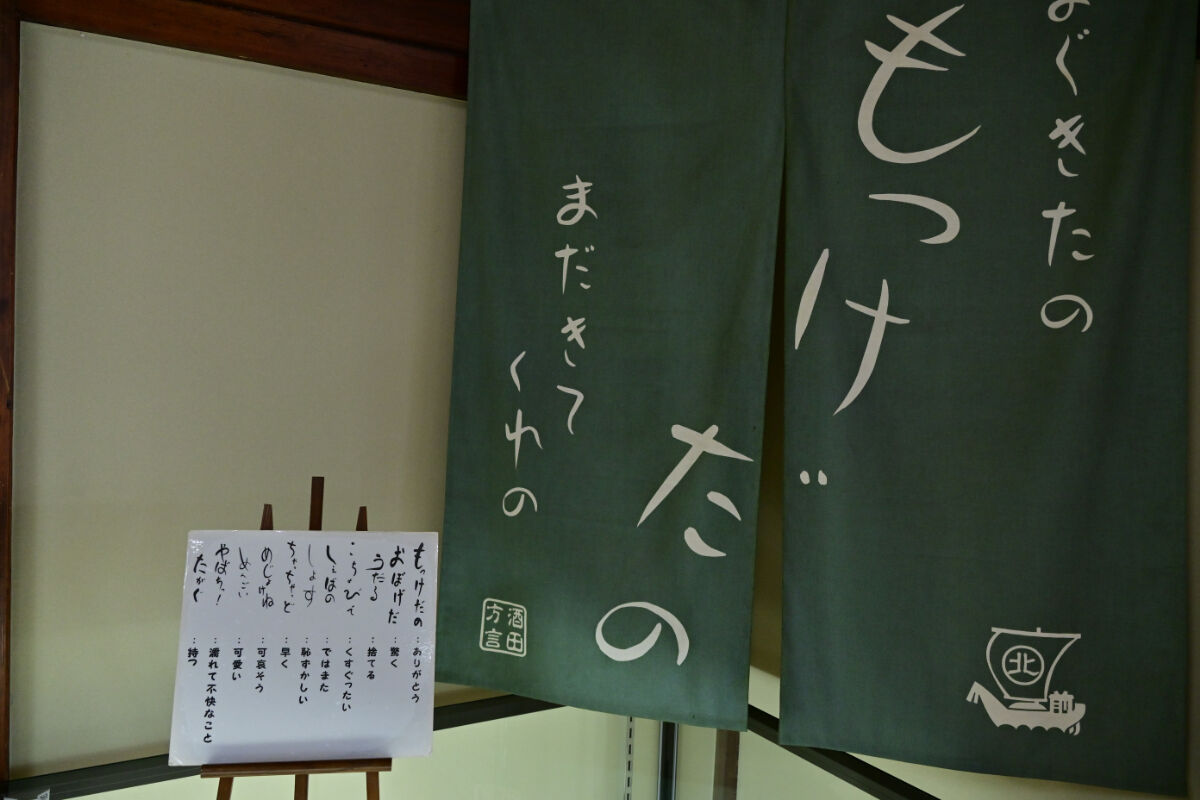 よぐきたの
もっけ
だの
まだきて
くれの
酒田
方言
北
前
もっけだの：ありがとう
おぼげだ：驚く
うだる：捨てる
こちょびて：くすぐったい
しぇばの：ではまた
しょす：恥ずかしい
ちゃっちゃど：早く
めじょけね：可哀そう
めんごい：可愛い
やばち！：濡れて不快なこと
たがぐ：持つ